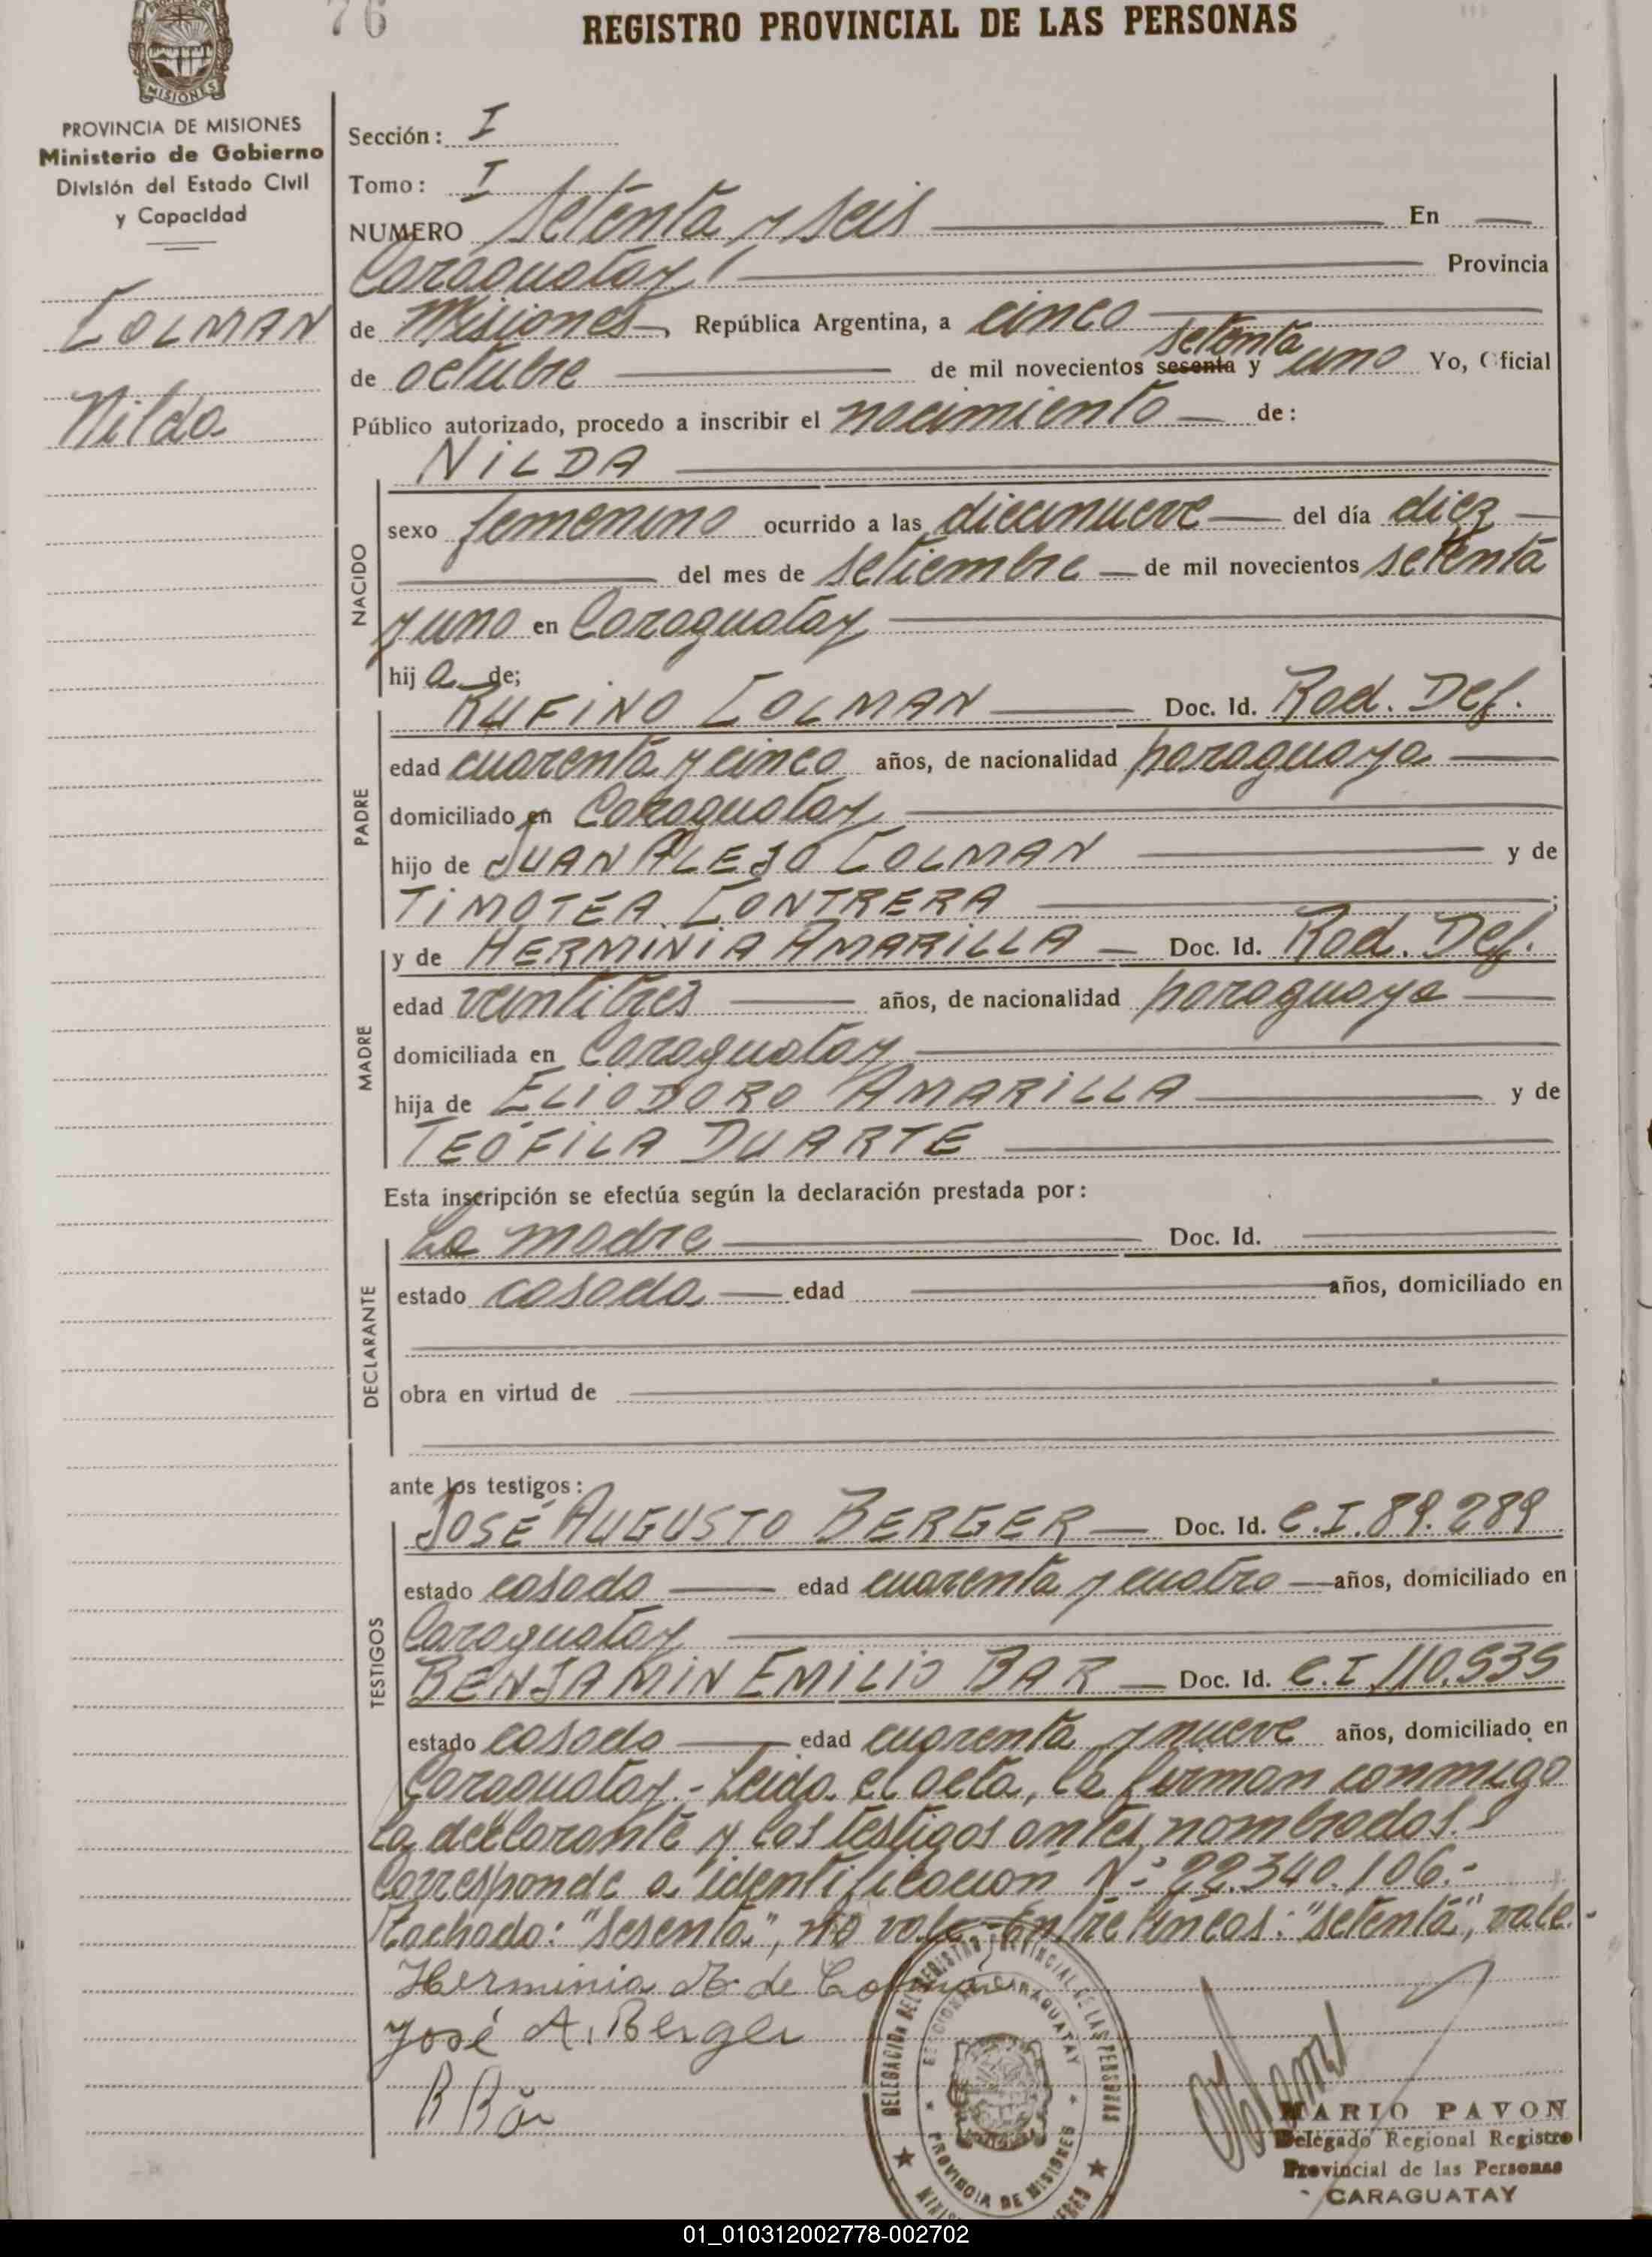 76
REGISTRO PROVINCIAL DE LAS PERSONAS
MISIONES
PROVINCIA DE MISIONES
Ministerio de Gobierno
División del Estado Civil
y Capacidad
COLMAN
Nilda
Sección: I
Tomo: I
NUMERO setenta y seis En
Caraguatay Provincia
de Misiones, República Argentina, a cinco
setenta
de octubre de mil novecientos sesenta y uno Yo, Oficial
Público autorizado, procedo a inscribir el nacimiento de:
NILDA
NACIDO
sexo femenino ocurrido a las diecinueve del día diez
del mes de setiembre de mil novecientos setenta
y uno en Caraguatay
hija de;
PADRE
RUFINO COLMAN Doc. Id. Rad. Def.
edad cuarenta y cinco años, de nacionalidad paraguaya
domiciliado en Caraguatay
hijo de JUAN ALEJO COLMAN y de
TIMOTEA CONTRERA ;
MADRE
y de HERMINIA AMARILLA Doc. Id. Rad. Def.
edad veintitres años, de nacionalidad paraguaya
domiciliada en Caraguatay
hija de ELIODORO AMARILLA y de
TEÓFILA DUARTE
Esta inscripción se efectúa según la declaración prestada por:
DECLARANTE
La madre Doc. Id.
estado casada edad años, domiciliado en
obra en virtud de
ante los testigos:
TESTIGOS
JOSÉ AUGUSTO BERGER Doc. Id. C.I. 89.289
estado casado edad cuarenta y cuatro años, domiciliado en
Caraguatay
BENJAMIN EMILIO BAR Doc. Id. C.I 110.535
estado casado edad cuarenta y nueve años, domiciliado en
Caraguatay.- Leida el acta, la firman conmigo
la declarante y los testigos antes nombrados.-
Corresponde a identificación N.º 22.340.106.-
Tachado: "sesenta", no vale.- Entre líneas: "setenta", vale.-
Herminia A. de Colman
José A. Berger
B Bar
DELEGACION DEL REGISTRO PROVINCIAL DE LAS PERSONAS
SECCIONAL CARAGUATAY
PROVINCIA DE MISIONES
MARIO PAVON
Delegado Regional Registro
Provincial de las Personas
CARAGUATAY
01_010312002778-002702